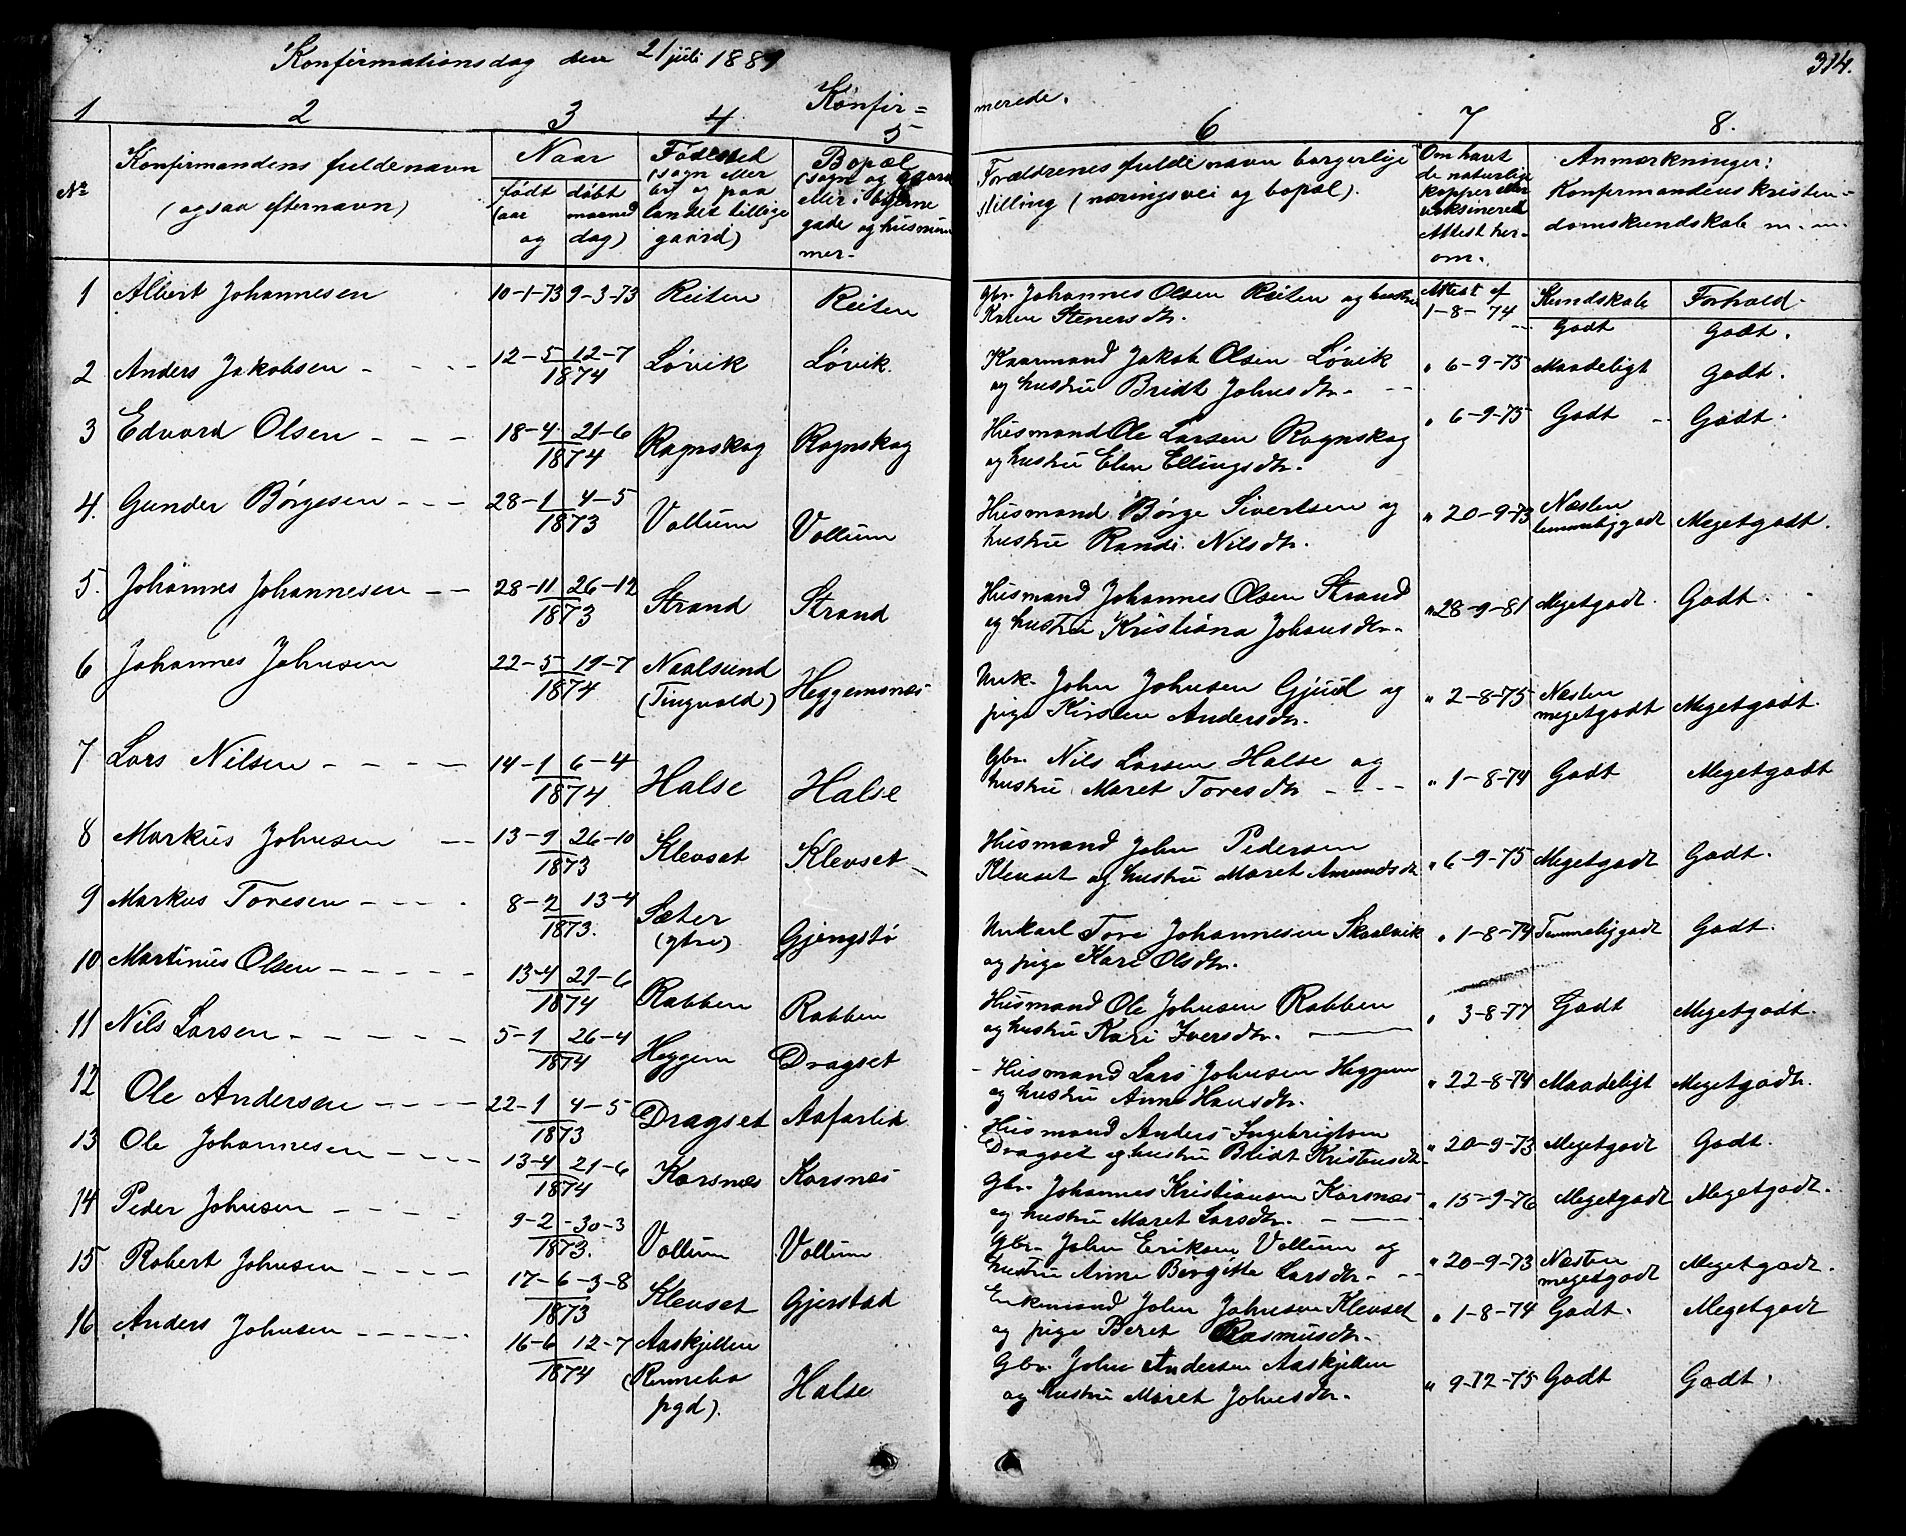 Konfirmationsdag den 21 juli 1889
Konfir=
merede.
314.
1 2 3 4 5 6 7 8.
No
Konfirmandens fulde navn
(ogsaa efternavn)
Naar
født
(aar
og
døbt
maaned
dag)
Fødested
(sogn eller
by og paa
landet tillige
gaard)
Bopæl
(sogn og gaard
eller i byerne
gade og husnum
mer.
Forældrenes fulde navn borgerlige
stilling (næringsvei og bopæl).
Om havt
de naturlige
kopper eller
vaksinered
Attest her-
om.
Anmærkninger:
Konfirmandens kristen-
domskundskab m. m.
Kundskab Forhold.
1 Albert Johannesen 10-1-73 9-3-73 Reiten Reiten
Gbr. Johannes Olsen Reiten og hustru
Karen Stenersdtr.
Attest af
1-8-74 Godt Godt.
2 Anders Jakobsen 12-5 12-7
1874 Løvik Løvik.
Kaarmand Jakob Olsen Løvik
og hustru Bridt Johnsdtr.
" 6-9-75 Maadeligt Godt.
3 Edvard Olsen 18-4 21-6
1874 Rognskog Rognskog
Husmand Ole Larsen Rognskog
og hustru Elen Ellingsdtr.
" 6-9-75 Godt Godt.
4. Gunder Børgesen 28-1 4-5
1873 Vollum Vollum
Husmand Børge Sivertsen og
hustru Randi Nilsdtr.
" 20-9-73 Næsten
temmeliggodt Megetgodt.
5. Johannes Johannesen 28-11 26-12
1873 Strand Strand
Husmand Johannes Olsen Strand
og hustru Kristiana Johansdtr.
" 28-9-81 Megetgodt. Godt.
6 Johannes Johnsen 22-5 19-7
1874 Naalsund
(Tingvold) Heggemsnes
Unk. John Johnsen Gjul og
pige Kirsten Andersdtr.
" 2-8-75 Næsten
megetgodt Megetgodt.
7 Lars Nilsen 14-1 6-4
1874 Halse Halse
Gbr. Nils Larsen Halse og
hustru Maret Toresdtr
" 1-8-74 Godt Megetgodt
8 Markus Johnsen 13-9 26-10
1873 Klevset Klevset
Husmand John Pedersen
Klevset og hustru Maret Amundsdtr
" 6-9-75 Megetgodt Godt.
9 Markus Toresen 8-2 13-4
1873. Sæter
(ytre) Gjengstø
Unkarl Tore Johannesen Skaalvik
og pige Kari Olsdtr.
" 1-8-74 Temmeliggodt Godt.
10 Martinus Olsen 13-4 21-6
1874 Rabben Rabben
Husmand Ole Johnsen Rabben
og hustru Kari Iversdtr.
" 3-8-77 Godt Megetgodt.
11 Nils Larsen 5-1 26-4
1874 Heggem Dragset
Husmand Lars Johnsen Heggem
og hustru Anne Hansdtr.
" 22-8-74 Maadeligt Megetgodt.
12 Ole Andersen 22-1 4-5
1873 Dragset Aafarlid
Husmand Anders Ingebrigtsen
Dragset og hustru Bridt Kristensdtr
" 20-9-73 Megetgodt Godt.
13 Ole Johannesen 13-4 21-6
1874 Korsnæs Korsnæs
Gbr. Johannes Kristiansen Korsnæs
og hustru Maret Larsdtr.
" 15-9-76 Megetgodt Megetgodt.
14 Peder Johnsen 9-2 30-3
1873. Vollum Vollum
Gbr. John Eriksen Vollum og
hustru Anne Birgitte Larsdtr.
" 20-9-73 Næsten
megetgodt Megetgodt.
15 Robert Johnsen 17-6 3-8
1873 Klevset Gjerstad
Enkemand John Johnsen Klevset
og pige Beret Rasmusdtr.
" 1-8-74 Godt. Megetgodt
16 Anders Johnsen 16-6 12-7
1874 Aaskjelden
(Rennebo
pgd). Halse
Gbr. John Andersen Aaskjelden
og hustru Maret Johnsdtr.
" 9-12-75 Godt Godt.